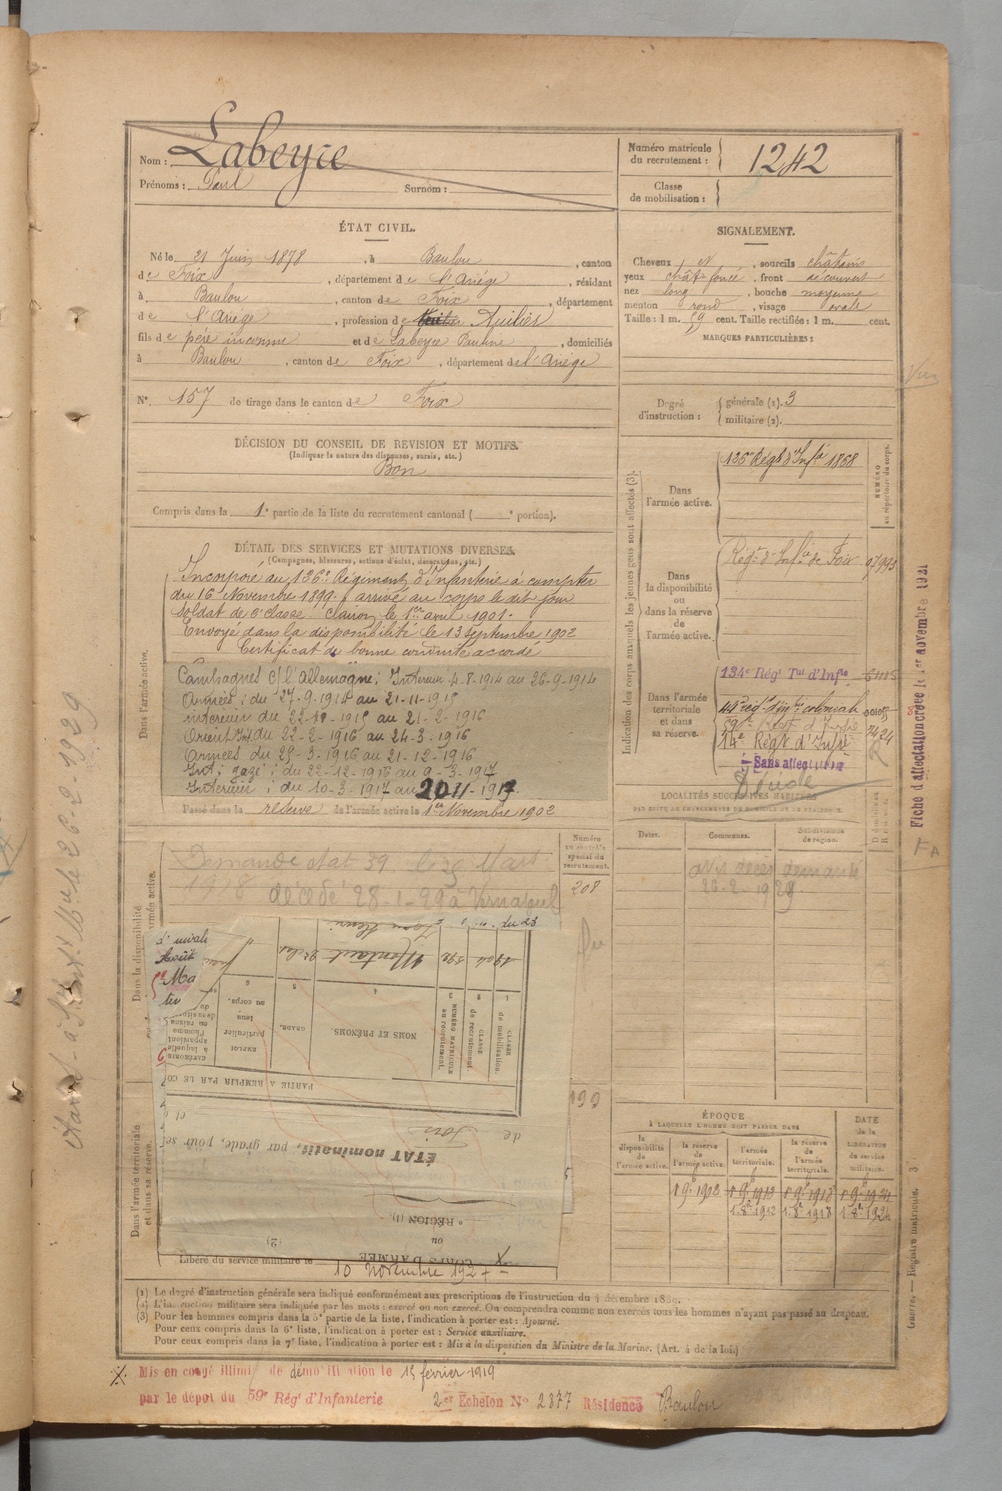 Nom : Labeyrie
Prénoms : Paul Surnom :
Numéro matricule du recrutement : 1242
Classe de mobilisation :
ÉTAT CIVIL.
Né le 21 Juin 1878, à Baulou, canton
de Foix, département de l'Ariège, résidant
à Baulou, canton de Foix, département
de l'Ariège, profession de Huilier
fils de père inconnu et de Labeyrie Pauline, domiciliés
à Baulou, canton de Foix, département de l'Ariège
N° 157 de tirage dans le canton de Foix
SIGNALEMENT.
Cheveux et, sourcils châtains
yeux chât. foncé, front découvert
nez long, bouche moyenne
menton rond, visage ovale
Taille : 1 m. 59 cent. Taille rectifiée : 1 m. cent.
MARQUES PARTICULIÈRES :
Degré d'instruction : générale (1). 3
militaire (2).
DÉCISION DU CONSEIL DE REVISION ET MOTIFS.
(Indiquer la nature des dispenses, sursis, etc.)
Bon
Compris dans la 1e partie de la liste du recrutement cantonal ( e portion).
DÉTAIL DES SERVICES ET MUTATIONS DIVERSES.
(Campagnes, blessures, actions d'éclat, décorations, etc.)
Dans l'armée active.
Incorporé au 136e Régiment d'Infanterie à compter
du 16 Novembre 1899, arrivé au corps le dit jour
Soldat de 2e classe. Clairon le 1er avril 1901.
Envoyé dans la disponibilité le 13 Septembre 1902
Certificat de bonne conduite accordé
Campagnes c/ l'Allemagne : Intérieur 4-8-1914 au 26-9-1914
Armées : du 27-9-1914 au 21-11-1915
intérieur du 22-11-1915 au 21-2-1916
Orient du 22-2-1916 au 24-3-1916
Armées du 25-3-1916 au 21-12-1916
Int; gazé; du 22-12-1916 au 9-3-1917
Intérieur; du 10-3-1917 au 20 11-1917
Passé dans la réserve de l'armée active le 1er Novembre 1902
Indication des corps auxquels les jeunes gens sont affectés (3).
NUMÉRO au répertoire du corps.
Dans l'armée active.
136e Régt d'Infie 1868
Dans la disponibilité ou dans la réserve de l'armée active.
Régt d'Infie de Foix
Dans l'armée territoriale et dans sa réserve.
134e Régt Tal d'Infie
44e rég d'inf coloniale
14e Régt d'Infie
Sans affectation
Décédé
LOCALITÉS SUCCESSIVES HABITÉES
PAR SUITE DE CHANGEMENTS DE DOMICILE OU DE RÉSIDENCE.
Dates. Communes. Subdivisions de région.
avis décès demandé
26-2-1929
Dans la disponibilité
Numéro au contrôle spécial du recrutement.
208
Demande état 39 le 25 Mars
1918 décédé 28-1-29 à Vernajoul
du 23
1904
CLASSE de mobilisation.
CLASSE de recrutement
NUMÉRO MATRICULE au recrutement.
NOMS ET PRÉNOMS.
GRADE.
EMPLOI particulier tenu au corps.
PARTIE A REMPLIR PAR LE CO
de Foix et
ÉTAT nominatif, par grade, pour ser
e RÉGION (1).
ou
CORPS D'ARMÉE
Dans l'armée territoriale et dans sa réserve.
Libéré du service militaire le 10 novembre 1927
ÉPOQUE
A LAQUELLE L'HOMME DOIT PASSER DANS
la disponibilité de l'armée active.
la réserve de l'armée active.
l'armée territoriale.
la réserve de l'armée territoriale.
DATE de la LIBÉRATION du service militaire.
1 9e 1902 1 9e 1912 1 9e 1918 1 9e 1924
1. 8e 1912 1. 8e 1918 1 8e 1924
(1) Le degré d'instruction générale sera indiqué conformément aux prescriptions de l'instruction du 4 décembre 1889.
(2) L'instruction militaire sera indiquée par les mots : exercé ou non exercé. On comprendra comme non exercés tous les hommes n'ayant pas passé au drapeau.
(3) Pour les hommes compris dans la 5e partie de la liste, l'indication à porter est : Ajourné.
Pour ceux compris dans la 6e liste, l'indication à porter est : Service auxiliaire.
Pour ceux compris dans la 7e liste, l'indication à porter est : Mis à la disposition du Ministre de la Marine. (Art. 4 de la loi.)
Mis en congé illimité de démobilisation le 15 février 1919
par le dépôt du 59e Rég' d'Infanterie 2er Echelon No 2377 Résidence Baulou
Fiche d'affectation créée le 1er novembre 1921
Registre matricule. 3
26-2-1929